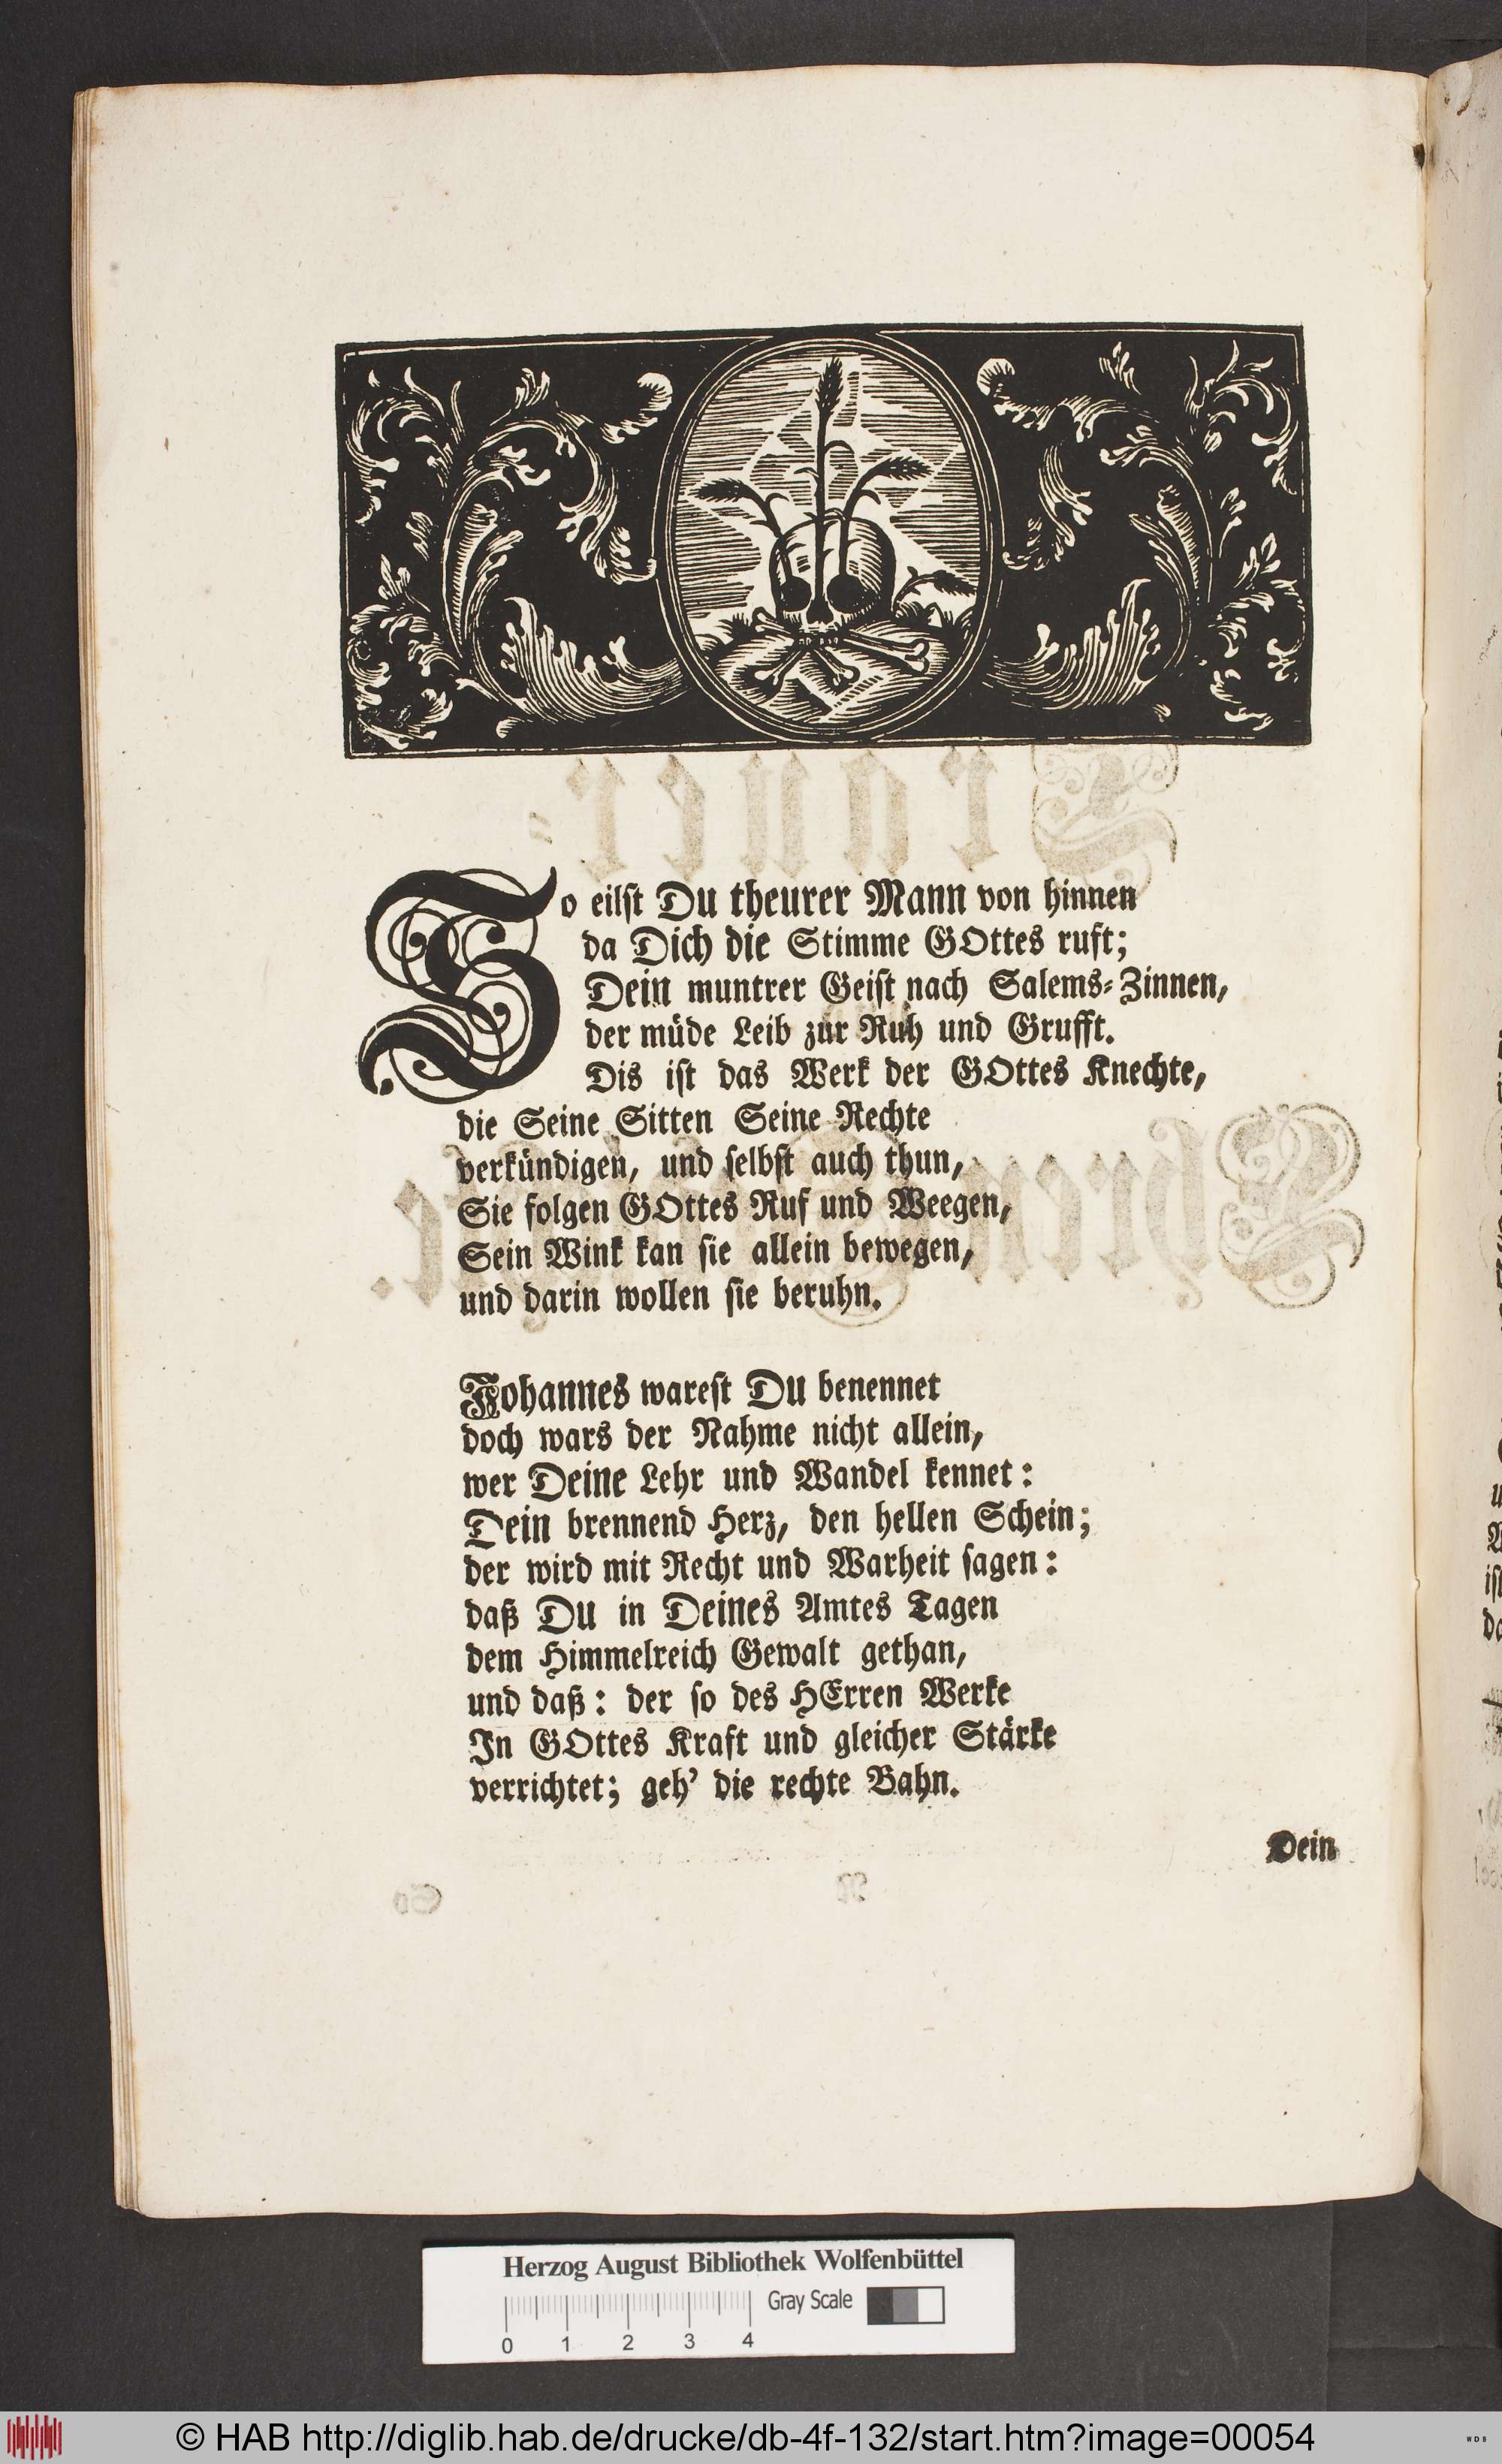 So eilst Du theurer Mann von hinnen
da Dich die Stimme GOttes ruft;
Dein muntrer Geist nach Salems-Zinnen,
der müde Leib zur Ruh und Grufft.
Dis ist das Werk der GOttes Knechte,
die Seine Sitten Seine Rechte
verkündigen, und selbst auch thun,
Sie folgen GOttes Ruf und Weegen,
Sein Wink kan sie allein bewegen,
und darin wollen sie beruhn.
Johannes warest Du benennet
doch wars der Nahme nicht allein,
wer Deine Lehr und Wandel kennet:
Dein brennend Herz, den hellen Schein;
der wird mit Recht und Warheit sagen:
daß Du in Deines Amtes Tagen
dem Himmelreich Gewalt gethan,
und daß: der so des HErren Werke
In GOttes Kraft und gleicher Stärke
verrichtet; geh' die rechte Bahn.
Dein
Herzog August Bibliothek Wolfenbüttel
Gray Scale
0 1 2 3 4
© HAB http://diglib.hab.de/drucke/db-4f-132/start.htm?image=00054
WDB